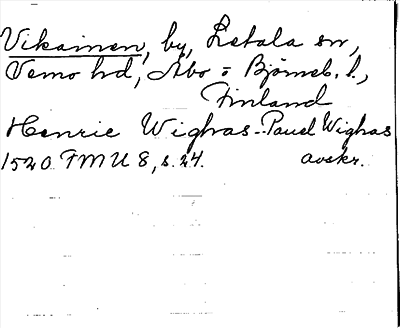 Vikainen, by, Letala sn,
Vemo hd, Åbo o Björneb. l.,
Finland
Henric Wighas - Pauel Wighas
1520 FMU 8, s. 24. avskr.